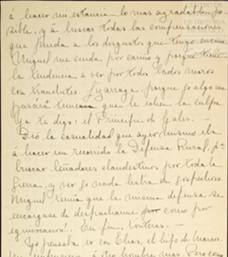 á hacer mi estancia lo mas agradable po-
sible, y á buscar todas las compensaciones
que pueda a los disgustos que tengo encima
Miguel me cuida por cariño y porque tiene
la tendencia á ser por todos lados moros
con tranchetes. Lizarraga porque si algo me
pasara temería que le echen la culpa
Ya te digo: el Principe de Gales.
Dió la casualidad que ayer mismo iba
á hacer un recorrido la Defensa Rural, pª
buscar leñadores clandestinos por toda la
Sierra, y ver si nada había de sospechoso.
Miguel temía que la misma defensa se
encargase de despacharme por como por
equivocación. En fin, tonterías.
Yo pensaba en Elias, el hijo de Marcos